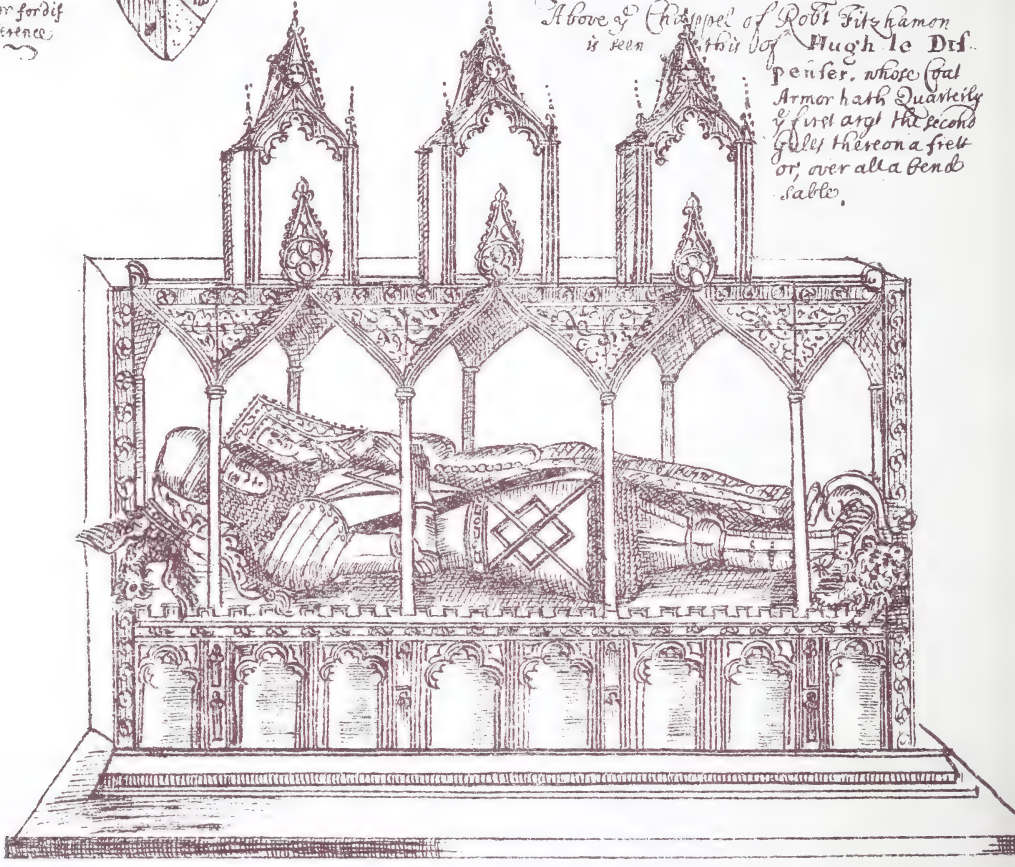 for dif
ference
Above yͤ Chappel of Robt Fitzhamon
is seen this of Hugh le Dis-
penser. whose Coat
Armor hath Quarterly
yͤ first argt the second
Gules thereon a frett
or, over all a bend
sable.